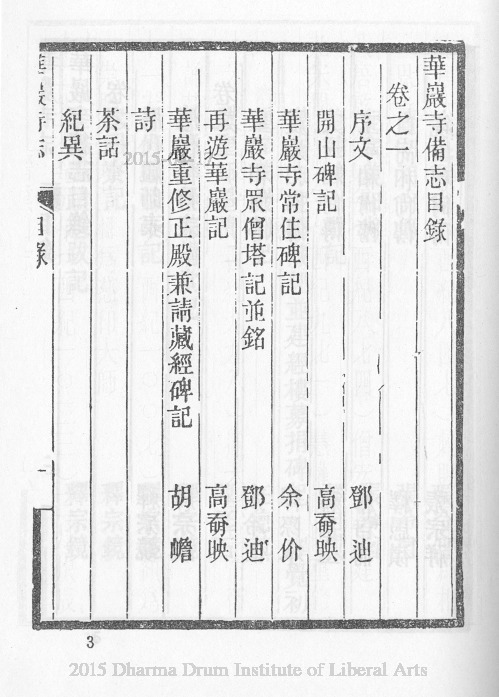 華巖寺備志目錄
卷之一
序文 鄧迪
開山碑記 高奣映
華巖寺常住碑記 余价
華巖寺眾僧塔記並銘 鄧迪
再遊華巖記 高奣映
華巖重修正殿兼請藏經碑記 胡蟾
詩
茶話
紀異
華巖寺志 目錄 一
3
2015 Dharma Drum Institute of Liberal Arts